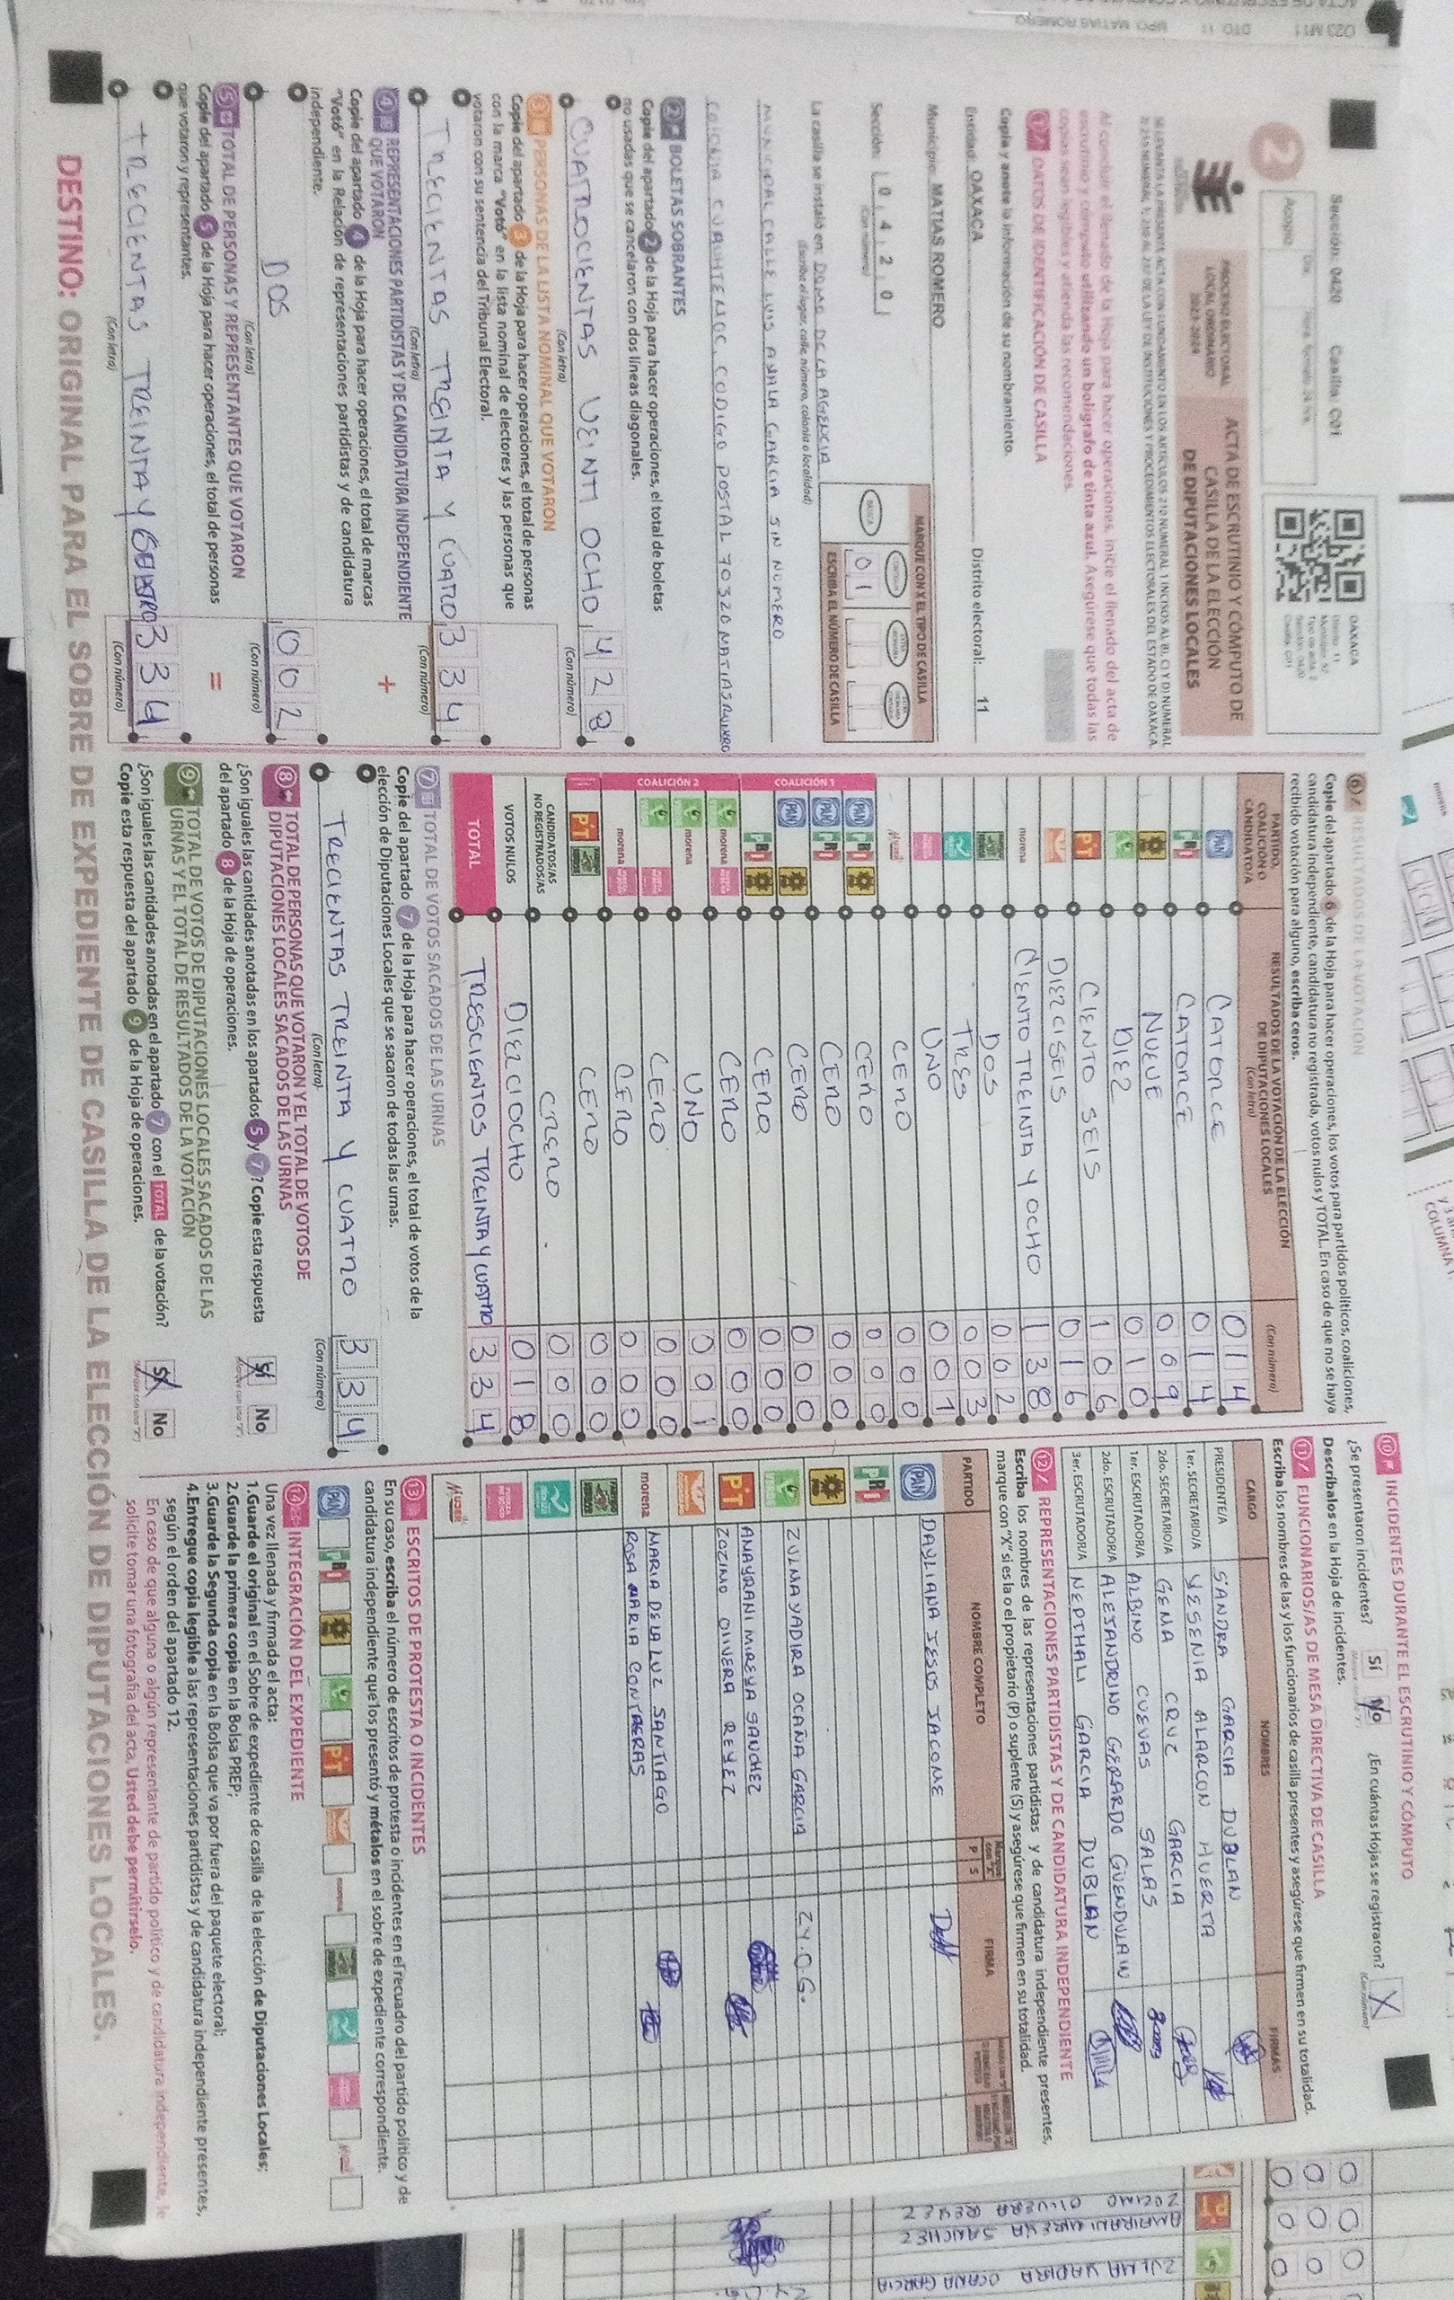 Sección: 0420 Casilla: C01
Acopio
OAXACA
2
PROCESO ELECTORAL
LOCAL ORDINARIO
2023-2024
ACTA DE ESCRUTINIO Y CÓMPUTO DE
CASILLA DE LA ELECCIÓN
DE DIPUTACIONES LOCALES
Al concluir el llenado de la Hoja para hacer operaciones, inicie el llenado del acta de
escrutinio y cómputo utilizando un bolígrafo de tinta azul. Asegúrese que todas las
copias sean legibles y atienda las recomendaciones.
1 DATOS DE IDENTIFICACIÓN DE CASILLA
Copie y anote la información de su nombramiento.
Entidad: OAXACA Distrito electoral: 11
Municipio: MATIAS ROMERO
Sección: 0 4 2 0
(Con número)
MARQUE CON X EL TIPO DE CASILLA
BÁSICA
0 1
ESCRIBA EL NÚMERO DE CASILLA
La casilla se instaló en: DOMO DE LA AGENCIA
(Escriba el lugar, calle, número, colonia o localidad)
MUNICIPAL CALLE LUIS AYALA GARCIA SIN NUMERO
COLONIA CUAUHTEMOC, CODIGO POSTAL 70320 MATIAS ROMERO
2 BOLETAS SOBRANTES
Copie del apartado 2 de la Hoja para hacer operaciones, el total de boletas
no usadas que se cancelaron con dos líneas diagonales.
CUATROCIENTAS VEINTI OCHO 4 2 8
(Con letra) (Con número)
3 PERSONAS DE LA LISTA NOMINAL QUE VOTARON
Copie del apartado 3 de la Hoja para hacer operaciones, el total de personas
con la marca "Votó" en la lista nominal de electores y las personas que
votaron con su sentencia del Tribunal Electoral.
TRECIENTAS TREINTA Y CUATRO 3 3 4
(Con letra) (Con número)
4 REPRESENTACIONES PARTIDISTAS Y DE CANDIDATURA INDEPENDIENTE
QUE VOTARON
+
Copie del apartado 4 de la Hoja para hacer operaciones, el total de marcas
"Votó" en la Relación de representaciones partidistas y de candidatura
independiente.
DOS 0 0 2
(Con letra) (Con número)
5 TOTAL DE PERSONAS Y REPRESENTANTES QUE VOTARON
=
Copie del apartado 5 de la Hoja para hacer operaciones, el total de personas
que votaron y representantes.
TRECIENTAS TREINTA Y 3 3 4
(Con letra) (Con número)
6 RESULTADOS DE LA VOTACIÓN
Copie del apartado 6 de la Hoja para hacer operaciones, los votos para partidos políticos, coaliciones,
candidatura independiente, candidatura no registrada, votos nulos y TOTAL. En caso de que no se haya
recibido votación para alguno, escriba ceros.
PARTIDO, COALICIÓN O CANDIDATO/A
RESULTADOS DE LA VOTACIÓN DE LA ELECCIÓN
DE DIPUTACIONES LOCALES
(Con letra) (Con número)
PAN CATORCE 0 1 4
PRI CATORCE 0 1 4
NUEVE 0 0 9
DIEZ 0 1 0
PT CIENTO SEIS 1 0 6
DIEZ CISEIS 0 1 6
morena CIENTO TREINTA Y OCHO 1 3 8
DOS 0 0 2
TRES 0 0 3
UNO 0 0 1
CERO 0 0 0
COALICIÓN 1
PAN PRI CERO 0 0 0
PAN PRI CERO 0 0 0
PAN CERO 0 0 0
PRI CERO 0 0 0
COALICIÓN 2
morena CERO 0 0 0
morena UNO 0 0 1
CERO 0 0 0
morena CERO 0 0 0
PT CERO 0 0 0
CANDIDATOS/AS
NO REGISTRADOS/AS CRERO 0 0 0
VOTOS NULOS DIEZ CIOCHO 0 1 8
TOTAL TRESCIENTOS TREINTA Y CUATRO 3 3 4
7 TOTAL DE VOTOS SACADOS DE LAS URNAS
Copie del apartado 7 de la Hoja para hacer operaciones, el total de votos de la
elección de Diputaciones Locales que se sacaron de todas las urnas.
TRECIENTAS TREINTA Y CUATRO 3 3 4
(Con letra) (Con número)
8 TOTAL DE PERSONAS QUE VOTARON Y EL TOTAL DE VOTOS DE
DIPUTACIONES LOCALES SACADOS DE LAS URNAS
¿Son iguales las cantidades anotadas en los apartados 5 y 7? Copie esta respuesta
del apartado 8 de la Hoja de operaciones.
Sí No
9 TOTAL DE VOTOS DE DIPUTACIONES LOCALES SACADOS DE LAS
URNAS Y EL TOTAL DE RESULTADOS DE LA VOTACIÓN
¿Son iguales las cantidades anotadas en el apartado 7 con el TOTAL de la votación?
Copie esta respuesta del apartado 9 de la Hoja de operaciones.
Sí No
10 INCIDENTES DURANTE EL ESCRUTINIO Y CÓMPUTO
¿Se presentaron incidentes? Sí No ¿En cuántas Hojas se registraron? X
(Con número)
Descríbalos en la Hoja de incidentes.
11 FUNCIONARIOS/AS DE MESA DIRECTIVA DE CASILLA
Escriba los nombres de las y los funcionarios de casilla presentes y asegúrese que firmen en su totalidad.
CARGO NOMBRES FIRMAS
PRESIDENTE/A SANDRA GARCIA DUBLAN
1er. SECRETARIO/A YESENIA ALARCON HUERTA
2do. SECRETARIO/A GEMA CRUZ GARCIA
1er. ESCRUTADOR/A ALBINO CUEVAS SALAS
2do. ESCRUTADOR/A ALEJANDRINO GERARDO GUENDULAIN
3er. ESCRUTADOR/A NEPTHALI GARCIA DUBLAN
12 REPRESENTACIONES PARTIDISTAS Y DE CANDIDATURA INDEPENDIENTE
Escriba los nombres de las representaciones partidistas y de candidatura independiente presentes,
marque con "X" si es la o el propietario (P) o suplente (S) y asegúrese que firmen en su totalidad.
PARTIDO NOMBRE COMPLETO P S FIRMA
PAN DAYLIANA JESCS JACOME
PRI
ZULMA YADIRA OCAÑA GARCIA Z.Y.O.G.
ANAYRANI MIREYA SANCHEZ
PT ZOZIMO OLIVERA REYEZ
morena MARIA DE LA LUZ SANTIAGO
ROSA MARIA CONTRERAS
13 ESCRITOS DE PROTESTA O INCIDENTES
En su caso, escriba el número de escritos de protesta o incidentes en el recuadro del partido político y de
candidatura independiente que los presentó y métalos en el sobre de expediente correspondiente.
14 INTEGRACIÓN DEL EXPEDIENTE
Una vez llenada y firmada el acta:
1.Guarde el original en el Sobre de expediente de casilla de la elección de Diputaciones Locales;
2.Guarde la primera copia en la Bolsa PREP;
3.Guarde la Segunda copia en la Bolsa que va por fuera del paquete electoral;
4.Entregue copia legible a las representaciones partidistas y de candidatura independiente presentes,
según el orden del apartado 12.
En caso de que alguna o algún representante de partido político y de candidatura independiente, le
solicite tomar una fotografía del acta, Usted debe permitírselo.
DESTINO: ORIGINAL PARA EL SOBRE DE EXPEDIENTE DE CASILLA DE LA ELECCIÓN DE DIPUTACIONES LOCALES.